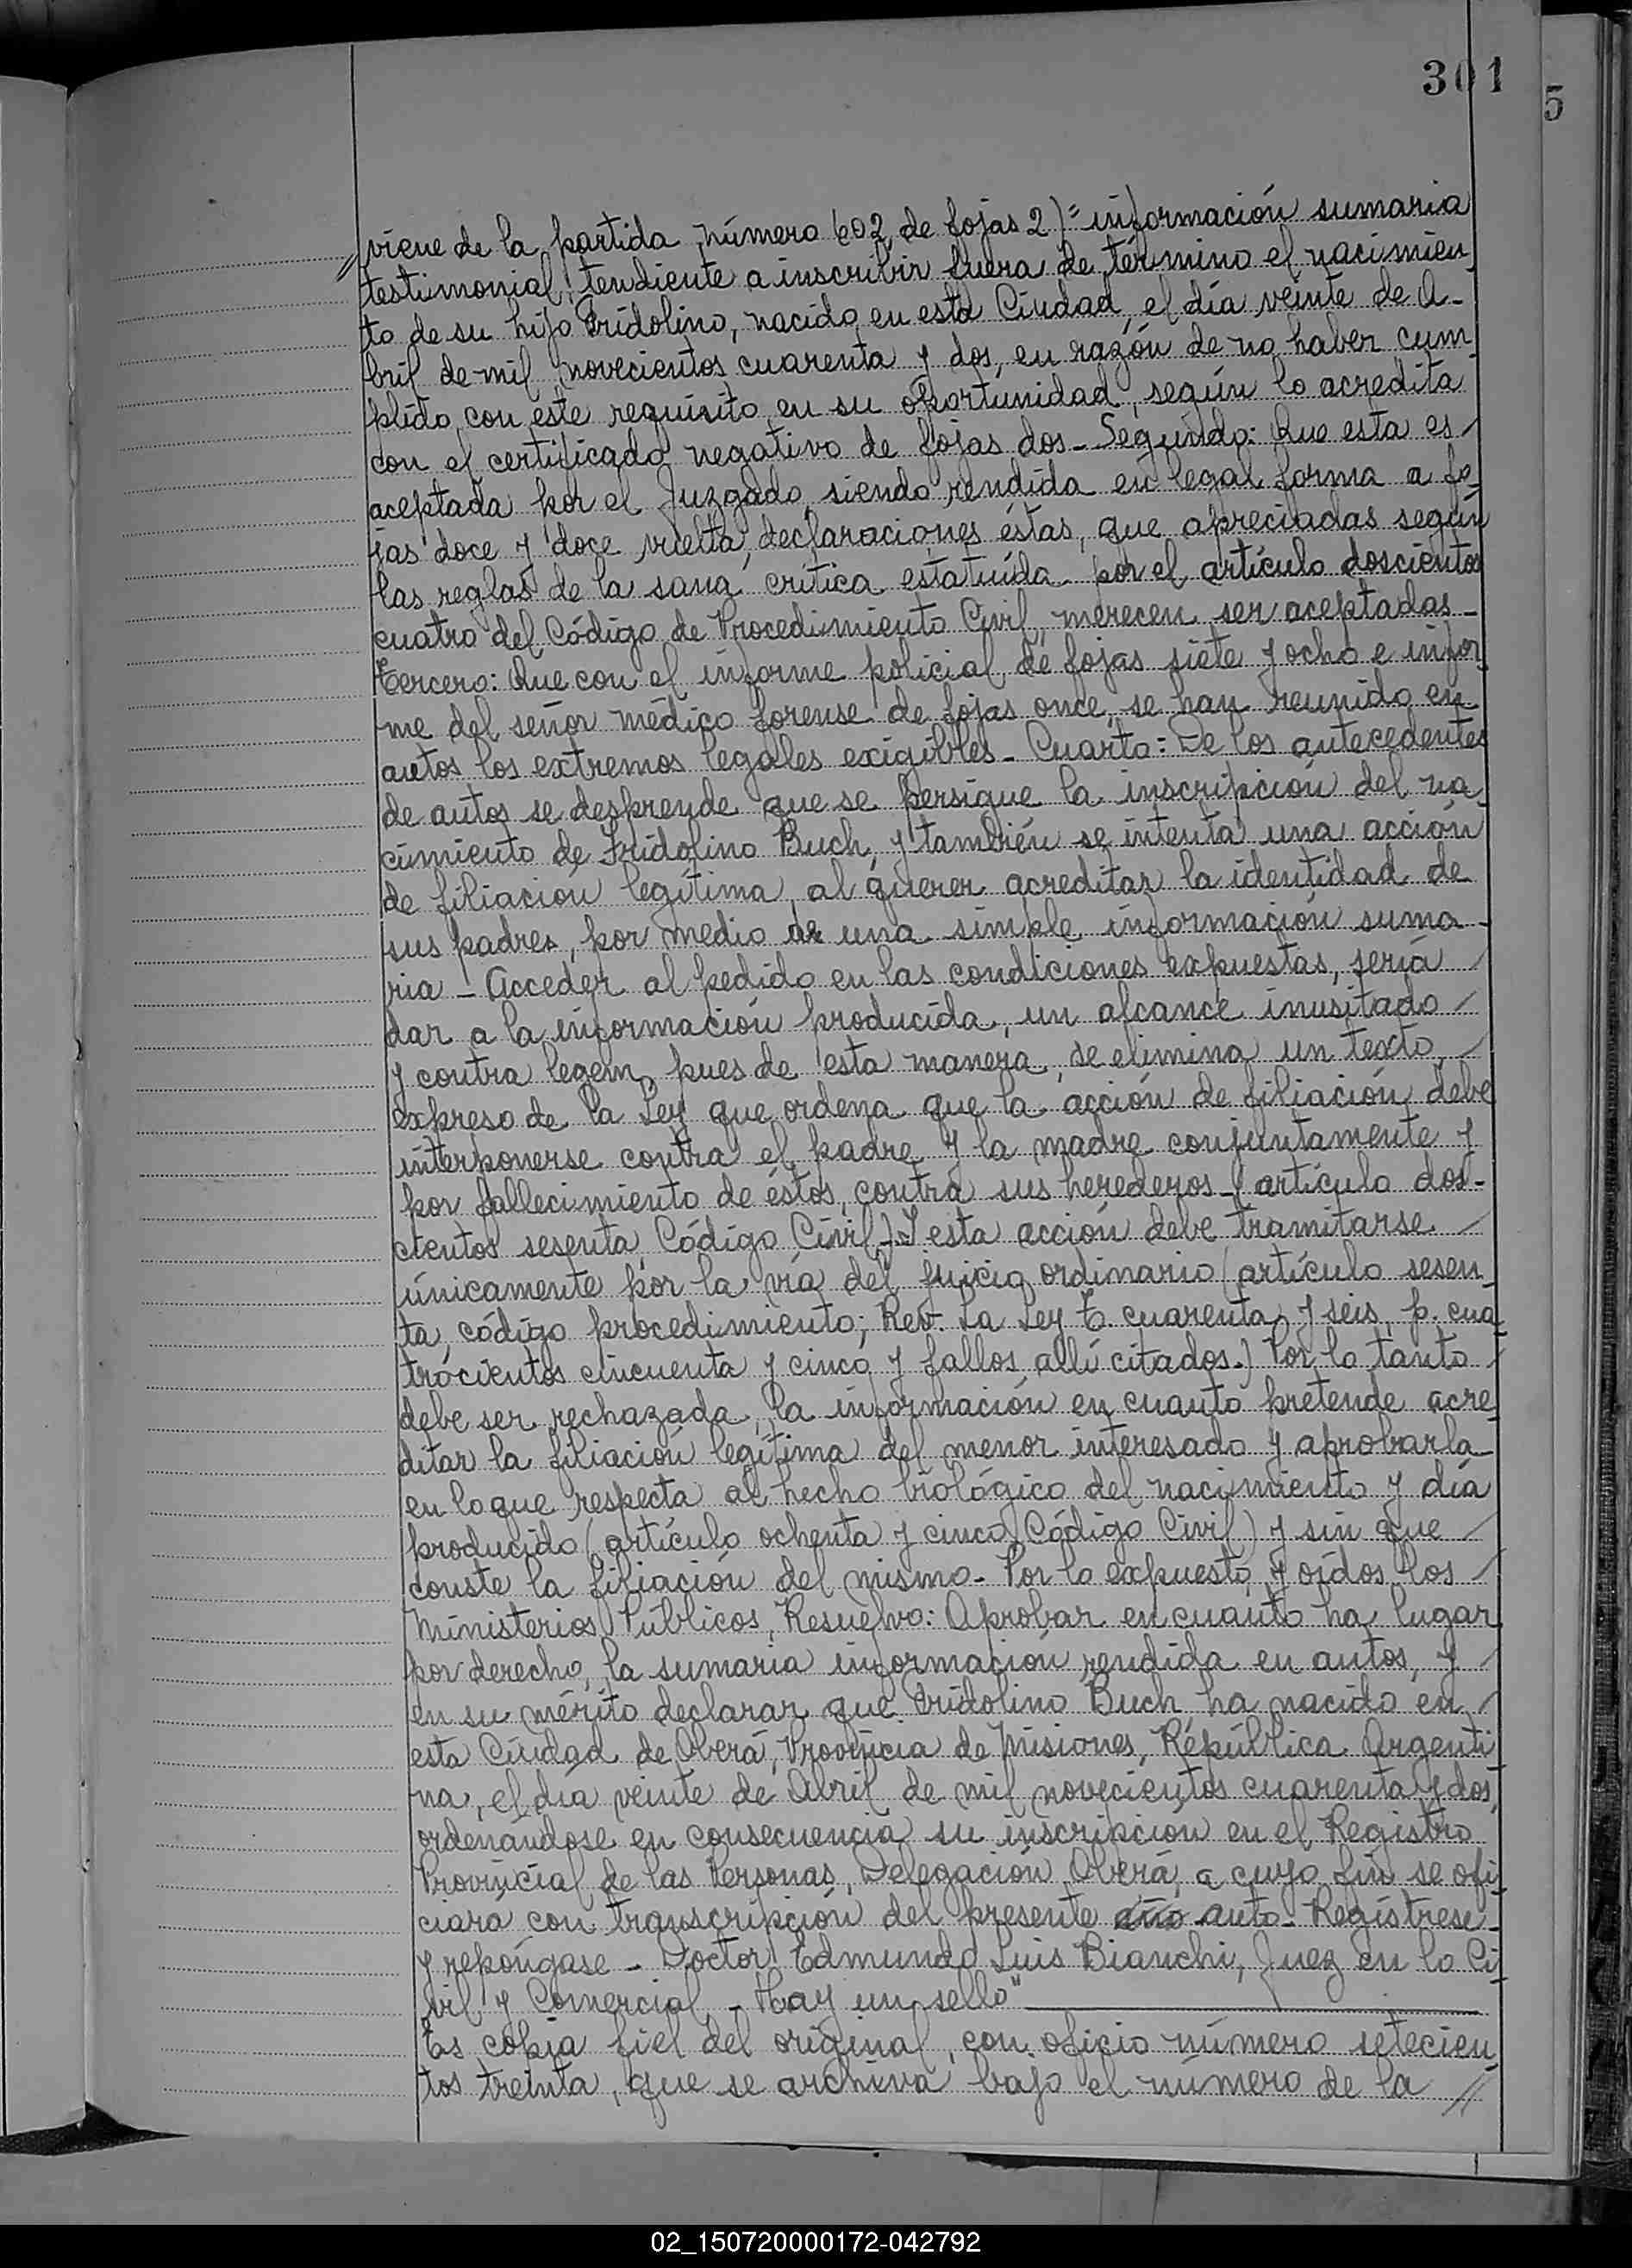 301
5
//viene de la partida número 602 de fojas 2)= información sumaria
testimonial, tendiente a inscribir fuera de término el nacimien_
to de su hijo Fridolino, nacido en esta Ciudad, el día veinte de A-
bril de mil novecientos cuarenta y dos, en razón de no haber cum_
plido con este requisito en su oportunidad, según lo acredita
con el certificado negativo de fojas dos_ Segundo: Que esta es /
aceptada por el Juzgado, siendo rendida en legal forma a fo_
jas doce y doce vuelta, declaraciones éstas, que apreciadas según
las reglas de la sana crítica estatuída por el artículo doscientos
cuatro del Código de Procedimiento Civil, merecen ser aceptadas_
Tercero: Que con el informe policial de fojas siete y ocho e infor_
me del señor médico forense de fojas once, se han reunido en
autos los extremos legales exigibles_ Cuarto: De los antecedentes
de autos se desprende que se persigue la inscripción del na_
cimiento de Fridolino Buch, y también se intenta una acción
de filiación legítima, al querer acreditar la identidad de
sus padres, por medio de una simple información suma_
ria_ Acceder al pedido en las condiciones expuestas, sería /
dar a la información producida, un alcance inusitado /
y contra legem, pues de esta manera, se elimina un texto /
expreso de la Ley que ordena que la acción de filiación debe
interponerse contra el padre y la madre conjuntamente y
por fallecimiento de éstos, contra sus herederos_ (artículo dos-
cientos sesenta Código Civil)_ Y esta acción debe tramitarse /
únicamente por la vía del juicio ordinario (artículo sesen_
ta, código procedimiento; Rev. La Ley T. cuarenta y seis, p. cua_
trocientos cincuenta y cinco y fallos allí citados.) Por lo tanto /
debe ser rechazada, la información en cuanto pretende acre_
ditar la filiación legítima del menor interesado y aprobarla_
en lo que respecta al hecho biológico del nacimiento y día
producido (artículo ochenta y cinco Código Civil) y sin que /
conste la filiación del mismo_ Por lo expuesto, y oídos los /
Ministerios Públicos, Resuelvo: Aprobar en cuanto ha lugar
por derecho, la sumaria información rendida en autos, y /
en su mérito declarar que Fridolino Buch ha nacido en /
esta Ciudad de Oberá, Provincia de Misiones, República Argenti_
na, el día veinte de Abril de mil novecientos cuarenta y dos,
ordenándose en consecuencia su inscripción en el Registro
Provincial de las Personas, Delegación Oberá, a cuyo fin se ofi_
ciará con transcripción del presente auto_ Regístrese_
y repóngase_ Doctor Edmundo Luis Bianchi, Juez en lo Ci_
vil y Comercial_ Hay un sello"
Es copia fiel del original, con oficio número setecien_
tos treinta, que se archiva bajo el número de la //
02_150720000172-042792